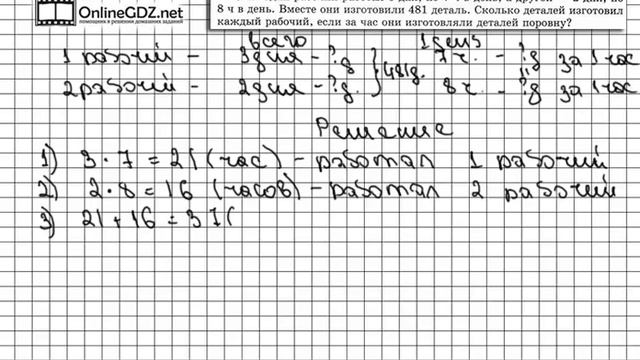 OnlineGDZ.net
помощник в решении домашних заданий
8 ч в день. Вместе они изготовили 481 деталь. Сколько деталей изготовил
каждый рабочий, если за час они изготовляли деталей поровну?
всего 1 день
1 рабочий - 3 дня - ? д } 481д. 7 ч. - ? д за 1 час
2 рабочий - 2 дня - ? д. 8 ч. - ? д за 1 час
Решение
1) 3 · 7 = 21 (час) - работал 1 рабочий
2) 2 · 8 = 16 (часов) - работал 2 рабочий
3) 21 + 16 = 37(